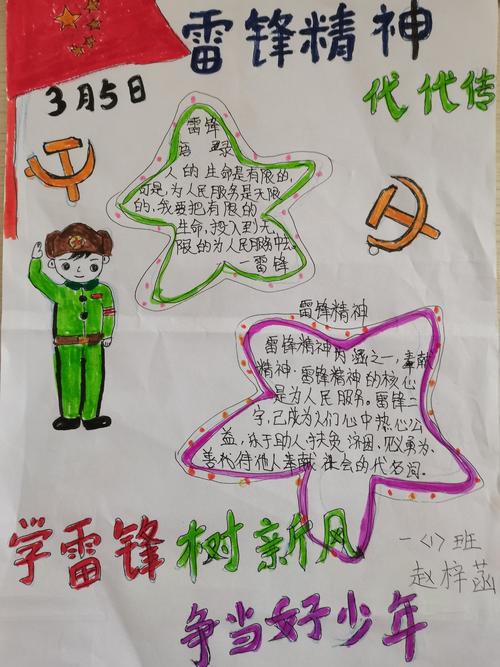 雷锋精神
3月5日
代代传
雷锋
语录
人的生命是有限的,
可是,为人民服务是无限
的,我要把有限的
生命,投入到无
限的为人民服务中去
—雷锋
雷锋精神
雷锋精神内涵之一,奉献
精神.雷锋精神的核心
是为人民服务。雷锋二
字,已成为人们心中热心公
益,乐于助人,扶贫济困,见义勇为,
善待他人奉献社会的代名词。
学雷锋树新风
争当好少年
一〈1〉班
赵梓菡